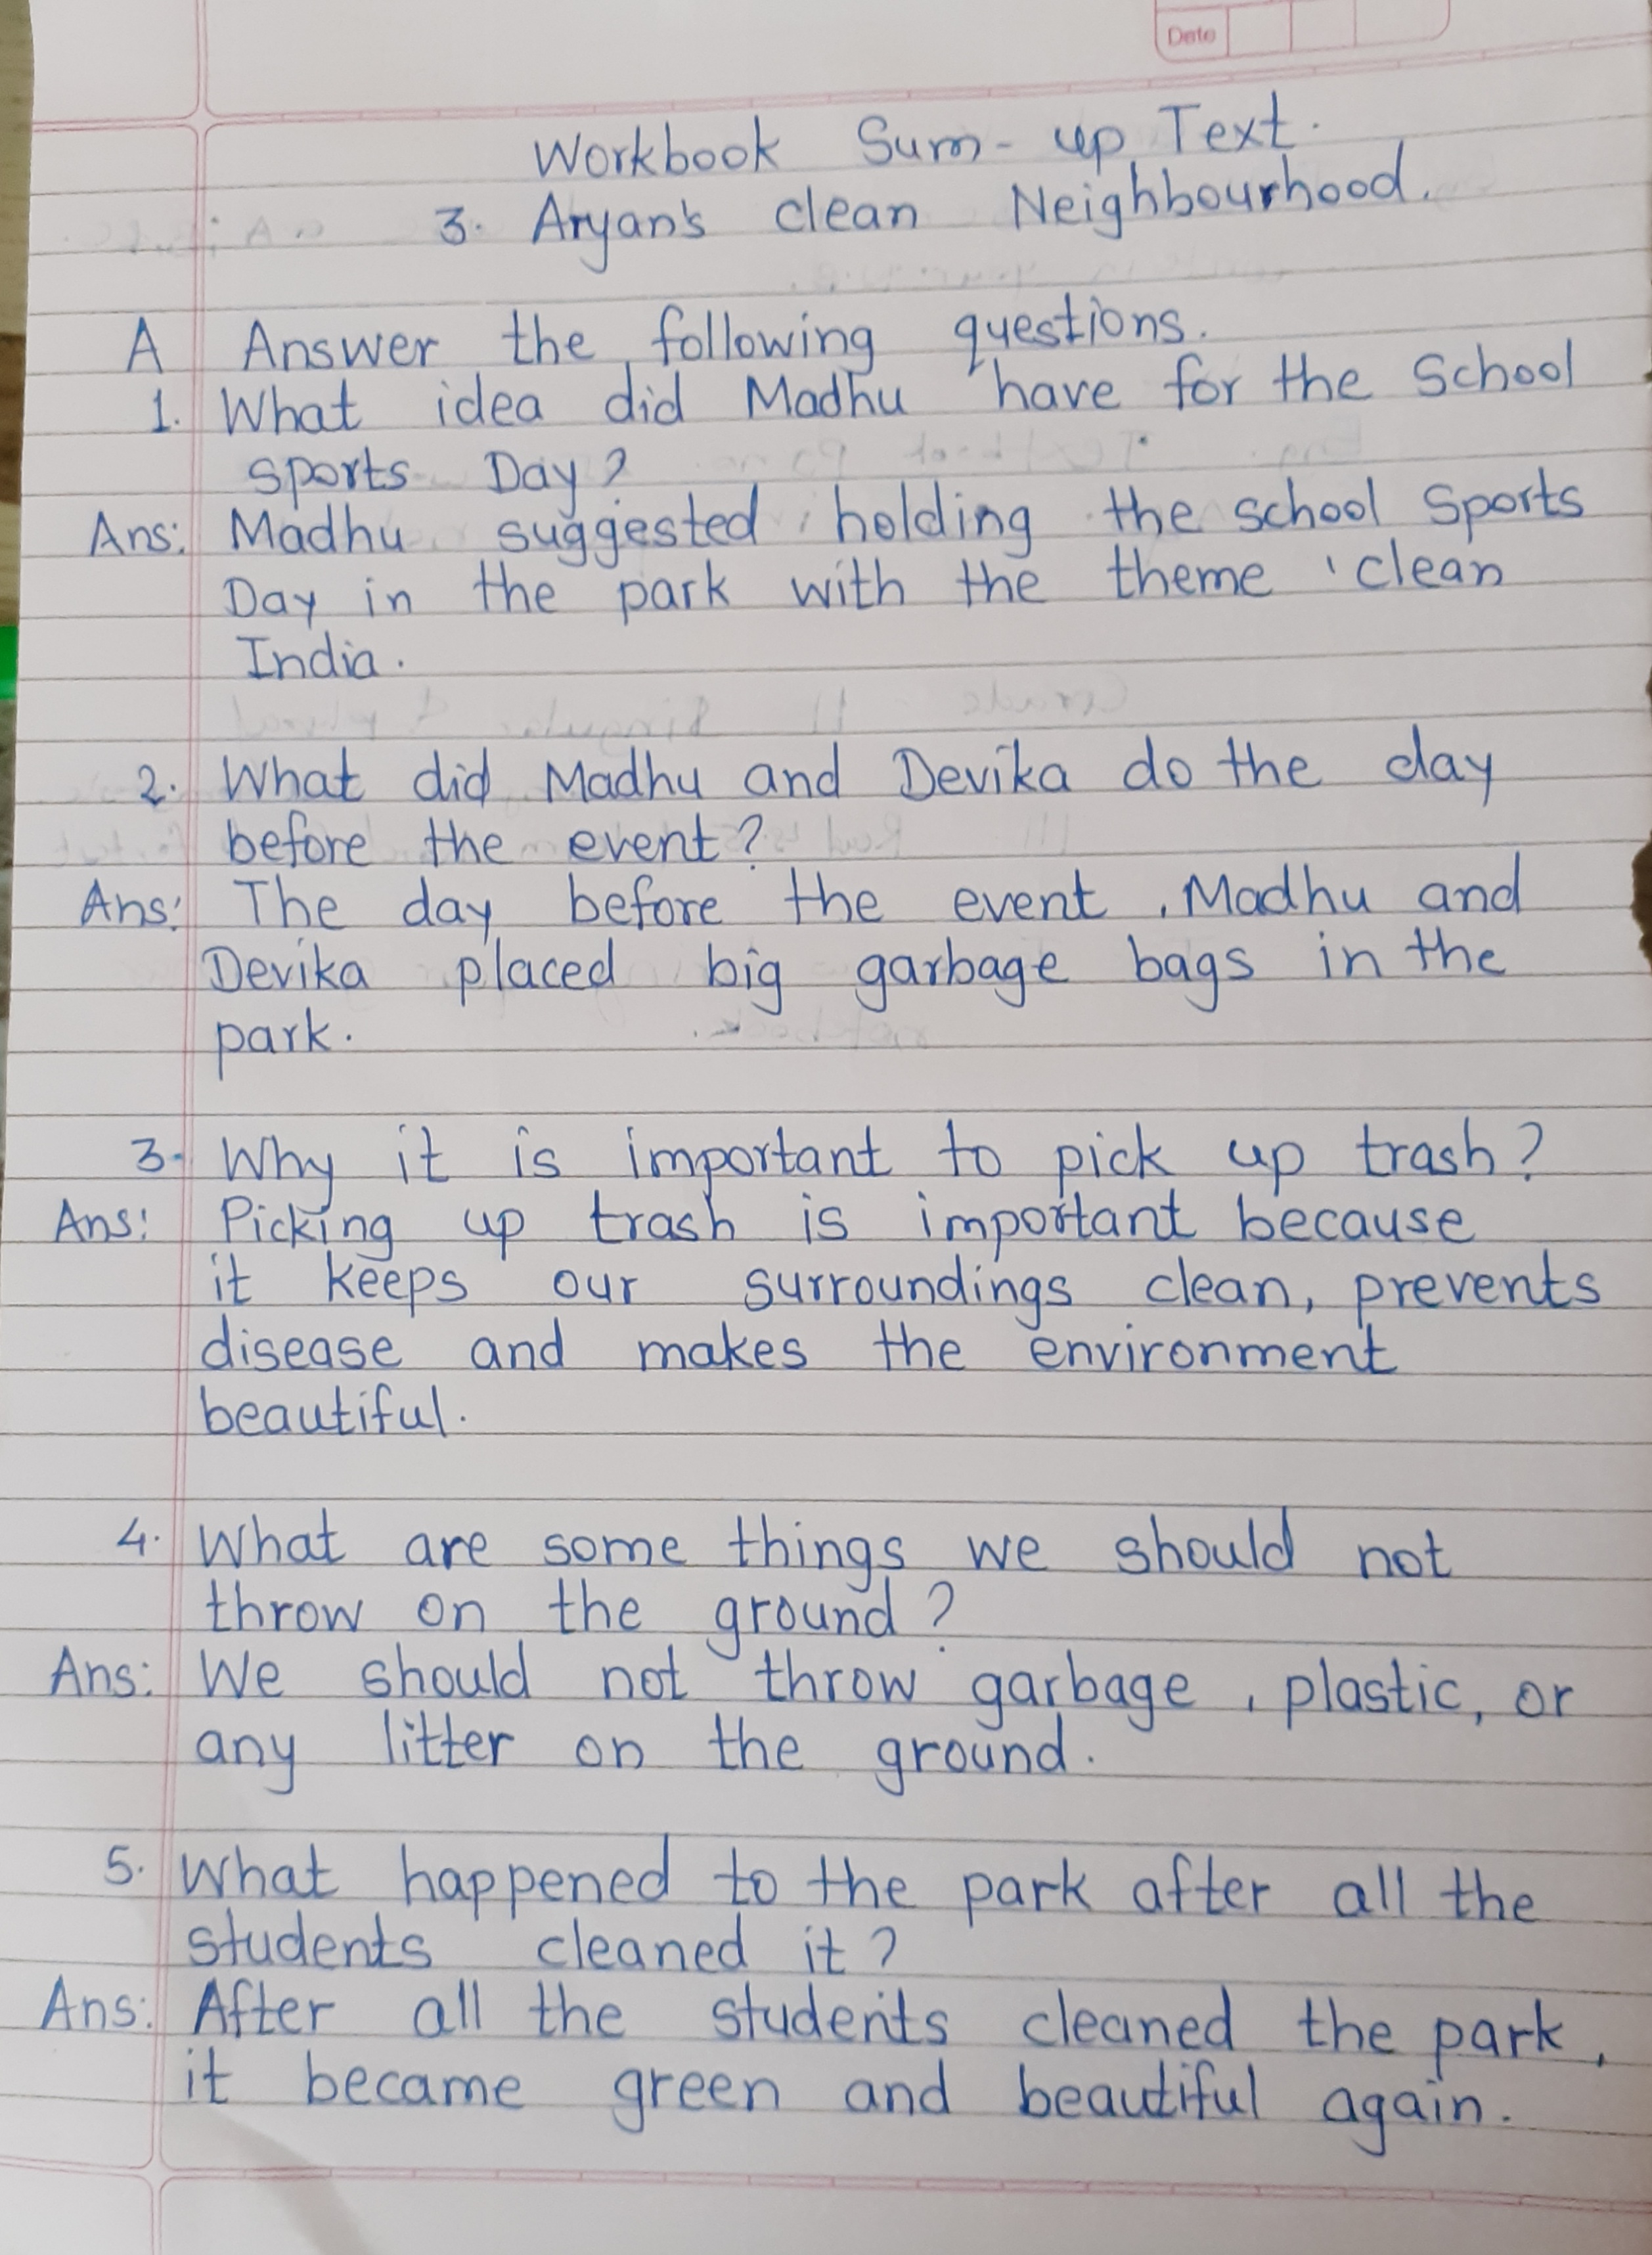 Date
Workbook Sum-up Text.
3. Aryan's clean Neighbourhood.
A Answer the following questions.
1. What idea did Madhu have for the School
sports Day?
Ans: Madhu suggested holding the school sports
Day in the park with the theme 'clean
India.
2. What did Madhu and Devika do the day
before the event?
Ans: The day before the event, Madhu and
Devika placed big garbage bags in the
park.
3. Why it is important to pick up trash?
Ans: Picking up trash is important because
it keeps our surroundings clean, prevents
disease and makes the environment
beautiful.
4. What are some things we should not
throw on the ground?
Ans: We should not throw garbage, plastic, or
any litter on the ground.
5. What happened to the park after all the
students cleaned it?
Ans: After all the students cleaned the park,
it became green and beautiful again.